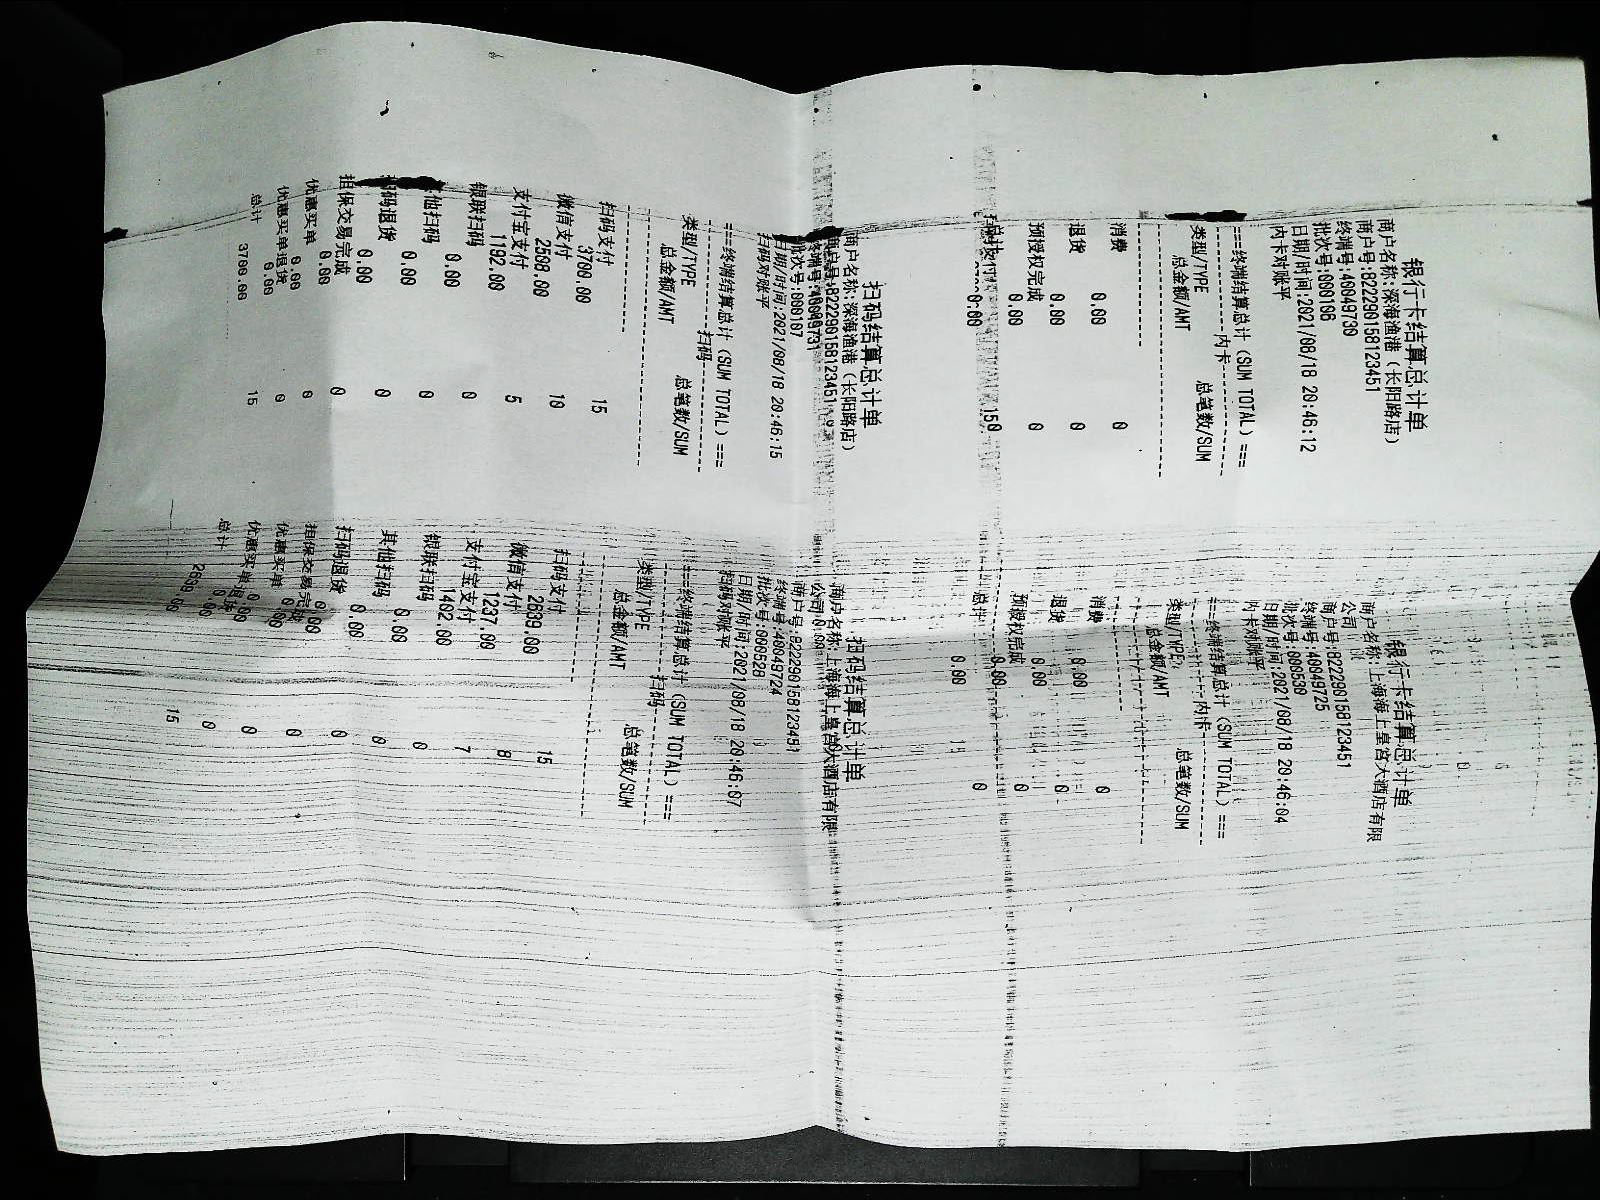 银行卡结算总计单
商户名称:深海渔港(长阳路店)
商户号:822290158123451
终端号:40049730
批次号:000106
日期/时间:2021/08/18 20:46:12
内卡对账平
===终端结算总计(SUM TOTAL)===
内卡
类型/TYPE 总笔数/SUM
总金额/AMT
消费 0
0.00
退货 0
0.00
预授权完成 0
0.00
总计
0.00
扫码结算总计单
商户名称:深海渔港(长阳路店)
商户号:822290158123451
终端号:40049731
批次号:000107
日期/时间:2021/08/18 20:46:15
扫码对账平
===终端结算总计(SUM TOTAL)===
扫码
类型/TYPE 总笔数/SUM
总金额/AMT
扫码支付 15
3700.00
微信支付 10
支付宝支付 5
1192.00
银联扫码 0
0.00
其他扫码 0
0.00
扫码退货 0
0.00
担保交易完成 0
0.00
优惠买单 0
0.00
优惠买单退货 0
0.00
总计 15
3700.00
银行卡结算总计单
商户名称:上海海上皇宫大酒店有限
公司
商户号:822290158123451
终端号:40049725
批次号:000530
日期/时间:2021/08/18 20:46:04
内卡对账平
===终端结算总计(SUM TOTAL)===
内卡
类型/TYPE 总笔数/SUM
总金额/AMT
消费 0
0.00
退货 0
0.00
预授权完成 0
0.00
总计 0
0.00
扫码结算总计单
商户名称:上海海上皇宫大酒店有限
公司
商户号:822290158123451
终端号:40049724
批次号:000528
日期/时间:2021/08/18 20:46:07
扫码对账平
===终端结算总计(SUM TOTAL)===
扫码
类型/TYPE 总笔数/SUM
总金额/AMT
扫码支付 15
2639.00
微信支付 8
1237.00
支付宝支付 7
1402.00
银联扫码 0
0.00
其他扫码 0
0.00
扫码退货 0
0.00
担保交易完成 0
0.00
优惠买单 0
0.00
优惠买单退货 0
0.00
总计 15